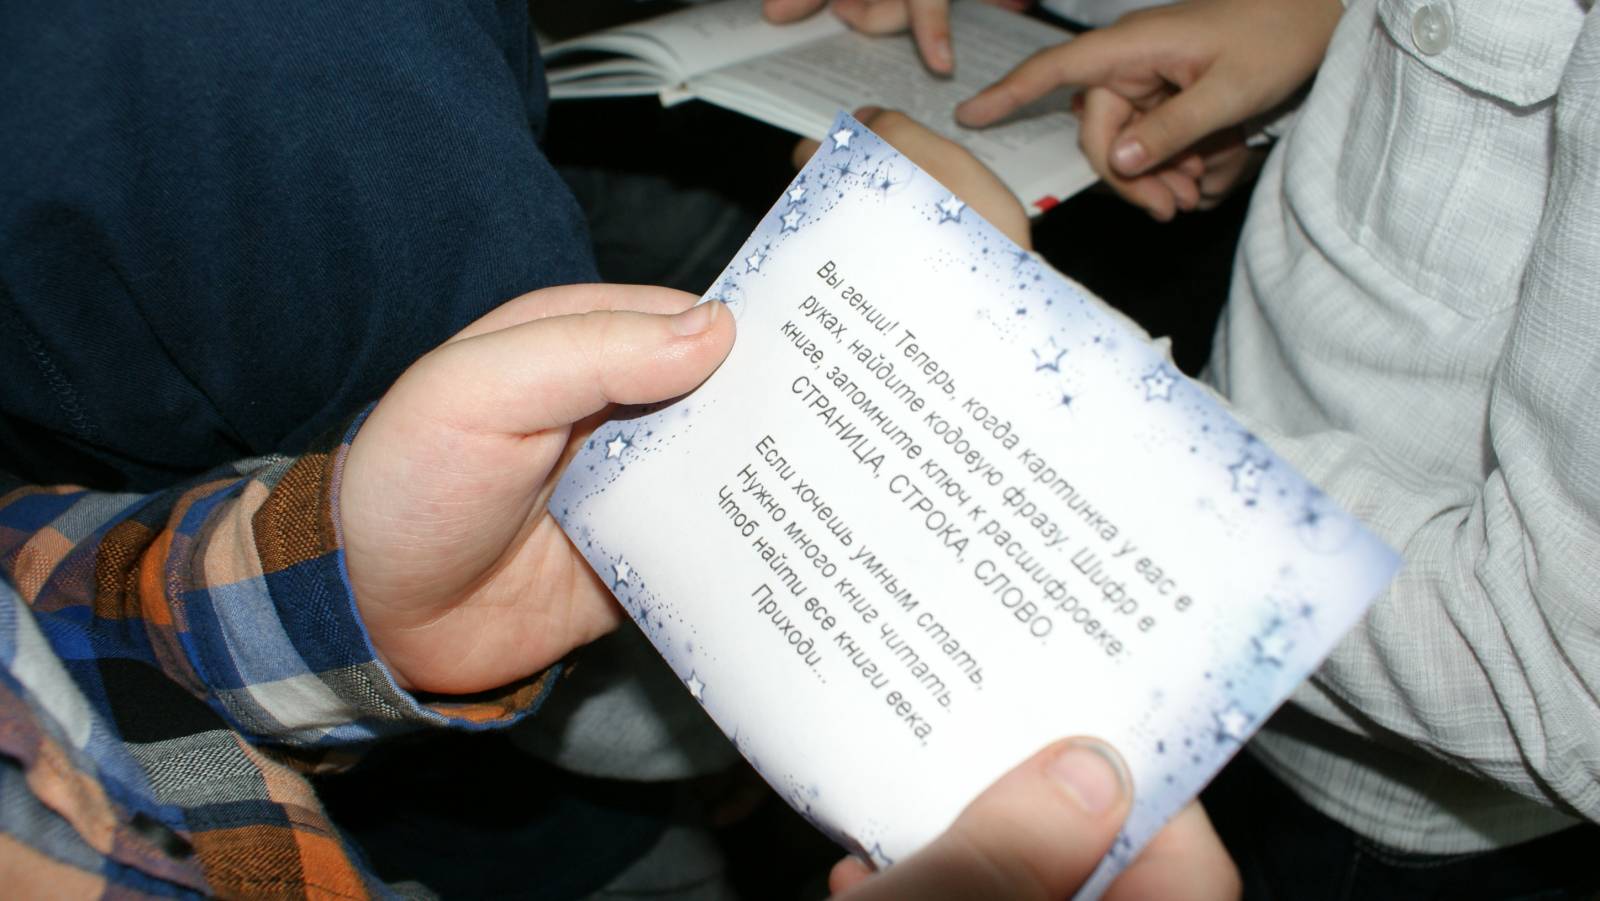 Вы гении! Теперь, когда картинка у вас в
руках, найдите кодовую фразу. Шифр в
книге, запомните ключ к расшифровке:
СТРАНИЦА, СТРОКА, СЛОВО.
Если хочешь умным стать,
Нужно много книг читать.
Чтоб найти все книги века,
Приходи...